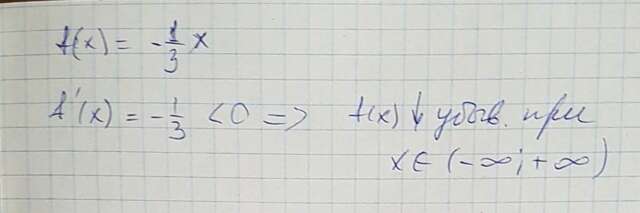 f(x) = -1/3 x
f'(x) = -1/3 < 0 => f(x) ↓ убыв. при
x ∈ (-∞; +∞)